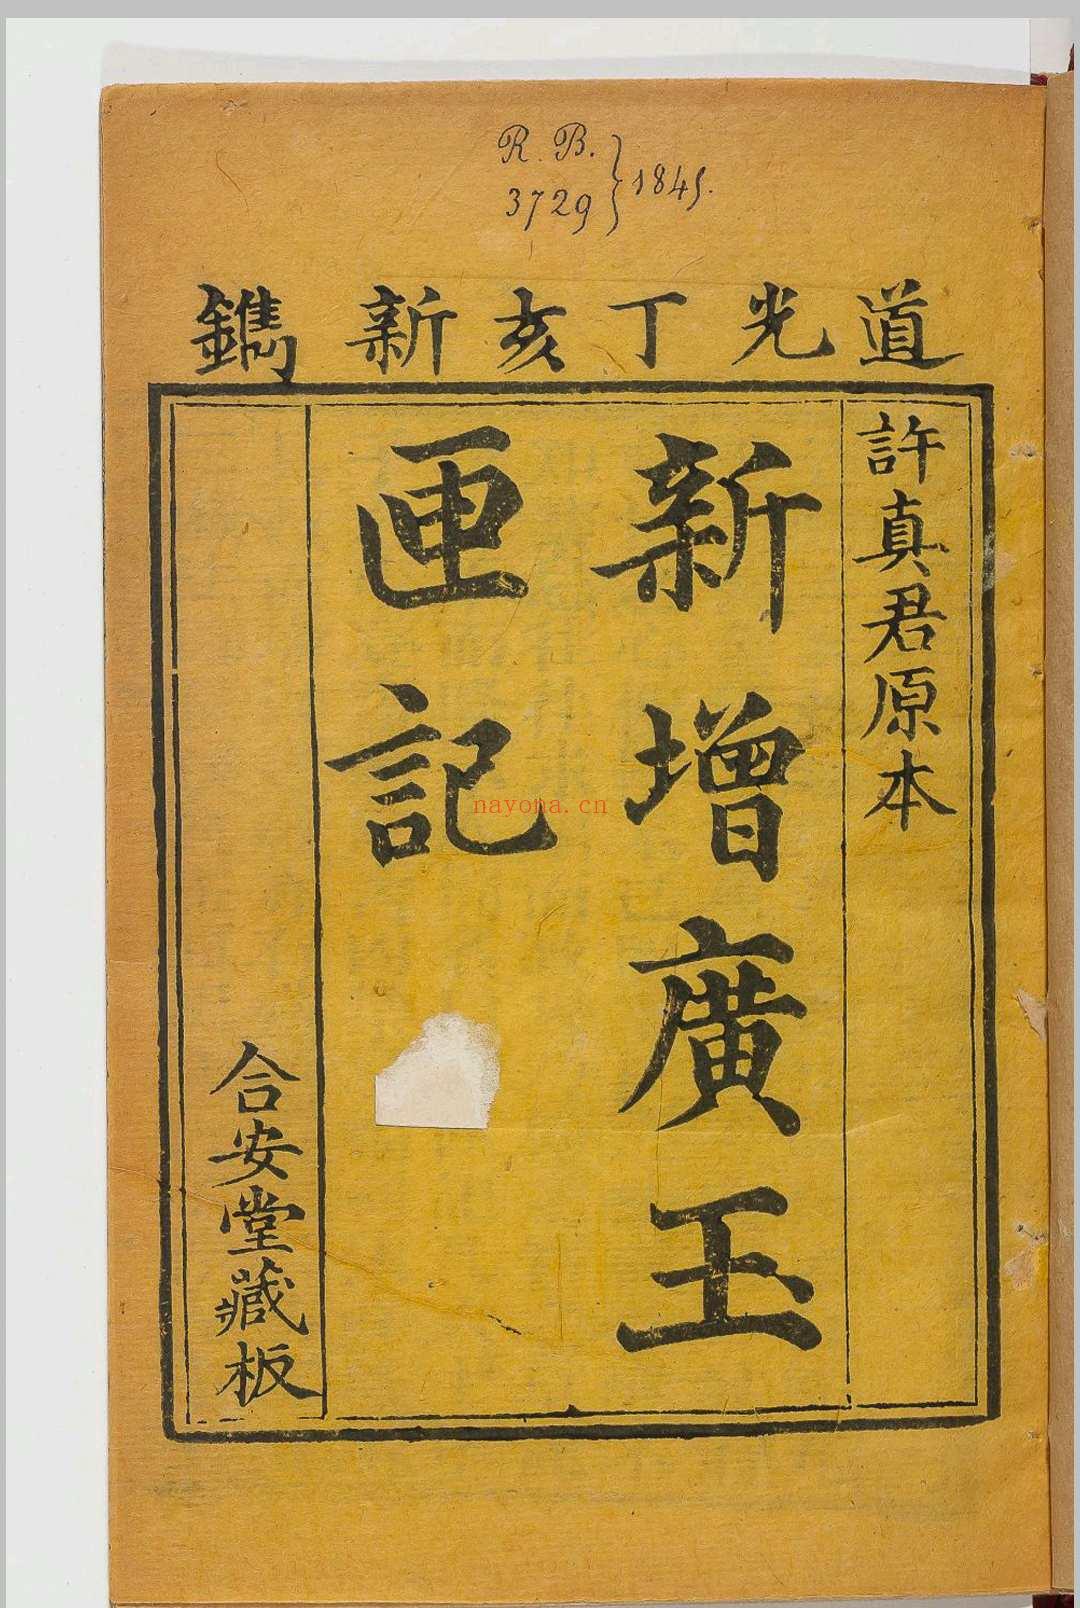 R. B. 3729 } 1845.
道光丁亥新鐫
許真君原本
新增廣玉
匣記
合安堂藏板
nayona.cn